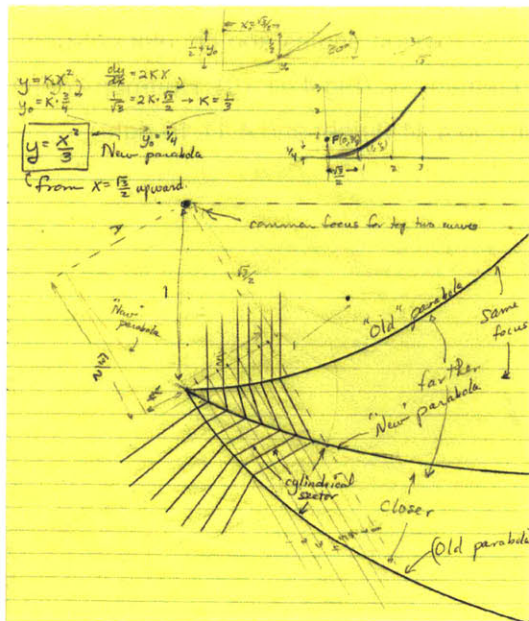 x = √3/2
1/2 + y₀
1/2
30°
y₀
y = Kx²
dy/dx = 2Kx
y₀ = K · 3/4
1/√3 = 2K · √3/2 → K = 1/3
y₀ = 1/4
y = x²/3
New parabola
from x = √3/2 upward
3
2
1
1/4
√3/2
1
2
3
common focus for top two curves
√3/2
1
"New"
parabola
"Old" parabola
Same
focus
farther
"New" parabola
cylindrical
sector
closer
(Old parabola